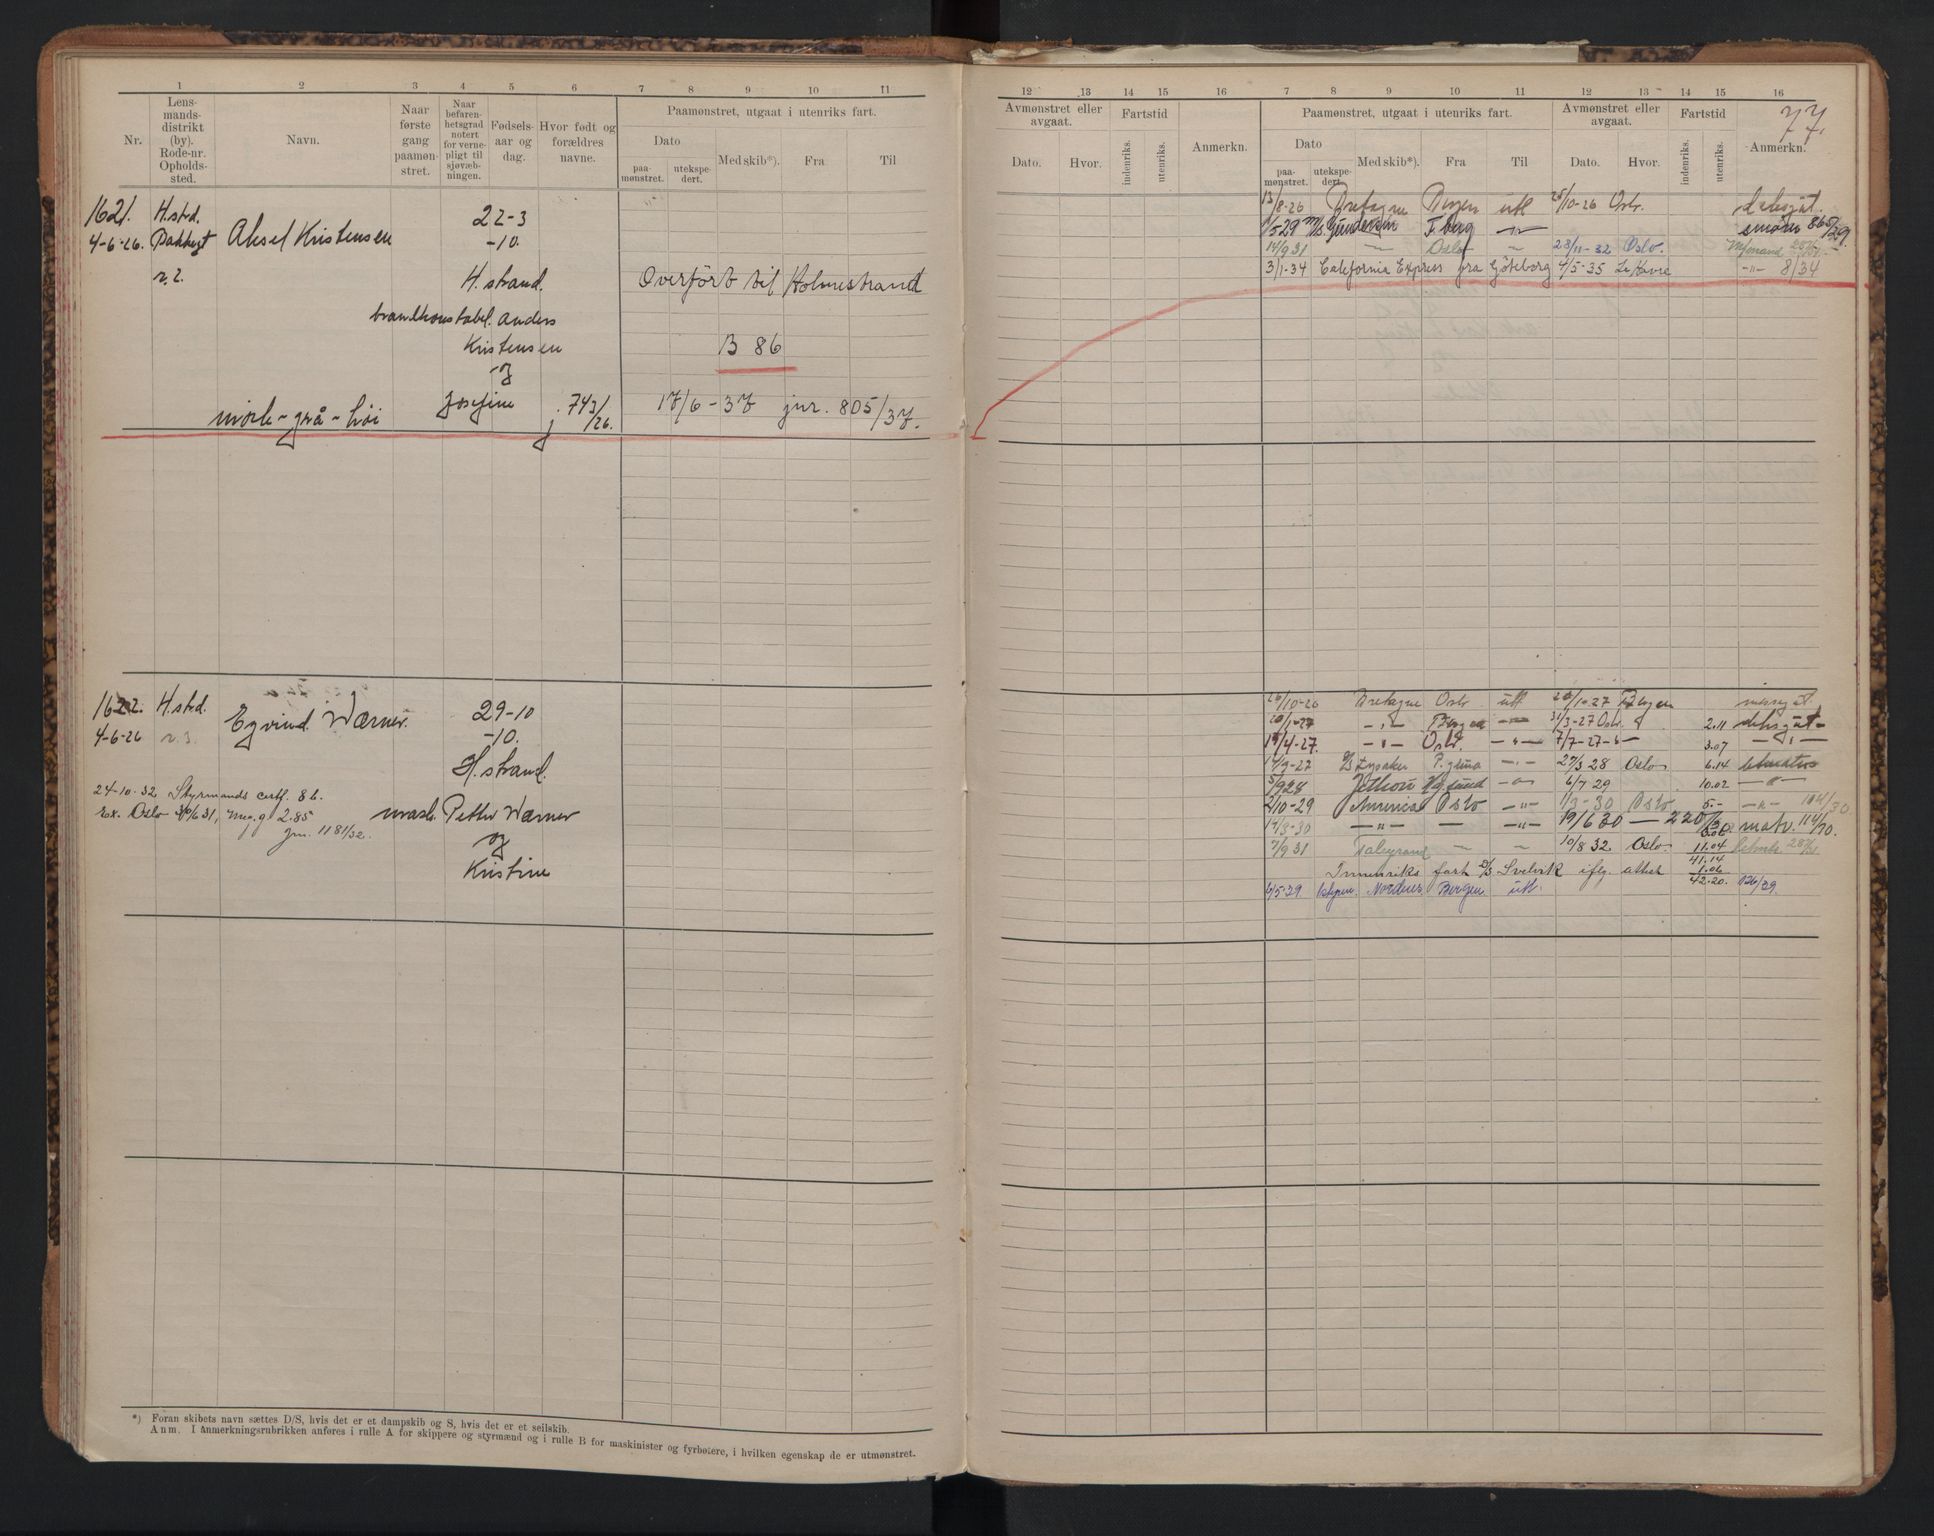 1 2 3 4 5 6 7 8 9 10 11
Nr. Lensmandsdistrikt (by). Rode-nr. Opholdssted. Navn. Naar første gang paamønstret. Naar befarenhetsgrad notert for vernepligt til sjøvæbningen. Fødselsaar og dag. Hvor født og forældres navne.
Paamønstret, utgaat i utenriks fart.
Dato paamønstret. utekspedert. Med skib*). Fra Til
1621. H.strd. 22-3
4-6-26. Aksel Kristensen -10.
r. 2. H. strand. Overført til Holmestrand
brandkonstabel. Anders
Kristensen B 86
og
Josefine j. 743/26. 17/6-37 jnr. 805/37.
mörk - grå - höi
1622. H.strd. Eyvind Værner. 29-10
4-6-26 r. 3. -10.
H. strand.
24-10-32 Styrmands certf. 86.
ex. Oslo 3/6 31, m. g 2.85 mask. Petter Værner
jnr. 1181/32. og
Kristine
*) Foran skibets navn sættes D/S, hvis det er et dampskib og S, hvis det er et seilskib.
Anm. I anmerkningsrubrikken anføres i rulle A for skippere og styrmænd og i rulle B for maskinister og fyrbøtere, i hvilken egenskap de er utmønstret.
12 13 14 15 16 7 8 9 10 11 12 13 14 15 16
77.
Avmønstret eller avgaat. Fartstid Paamønstret, utgaat i utenriks fart. Avmønstret eller avgaat. Fartstid
Dato. Hvor. indenriks. utenriks. Anmerkn. Dato paamønstret. utekspedert. Med skib*). Fra Til Dato. Hvor. indenriks. utenriks. Anmerkn.
13/8-26 Bretagne Bergen utl 25/10-26 Oslo. dæksgut.
1/5 29 m/s Gundersen F.berg -"- smører 865/29.
14/9 31 -"- Oslo " 23/11-32 Oslo. M/mand
3/1-34 California Express fra Göteborg 4/5-35 Le Havre -"- 8/34
26/10-26 Bretagne Oslo utl 20/1-27 Bergen messgut.
20/1-27 -"- Bergen -"- 31/3-27 Oslo 2.11 dæksgut -
19/4-27. -"- Oslo. -"- 7/7-27 -"- 3.07 -"-
14/9-27 Lysaker P.grund -"- 27/3 28 Oslo 6.14 letmatros
5/9 28 -"- 6/7 29 10.02 -"-
2/10-29 America Oslo -"- 1/3-30 Oslo 5.- -"- 104/30
14/3-30 -"- - -"- 19/6 30 - 220/30 3.06 matr. 114/30.
7/9 31 Taleyrand - " 10/8 32 Oslo. 11.04
41.14
Innenriks fart Svelvik iflg. attest 1.06
4/5-39 Nordnes Bergen utl. 42.20. 126/39.